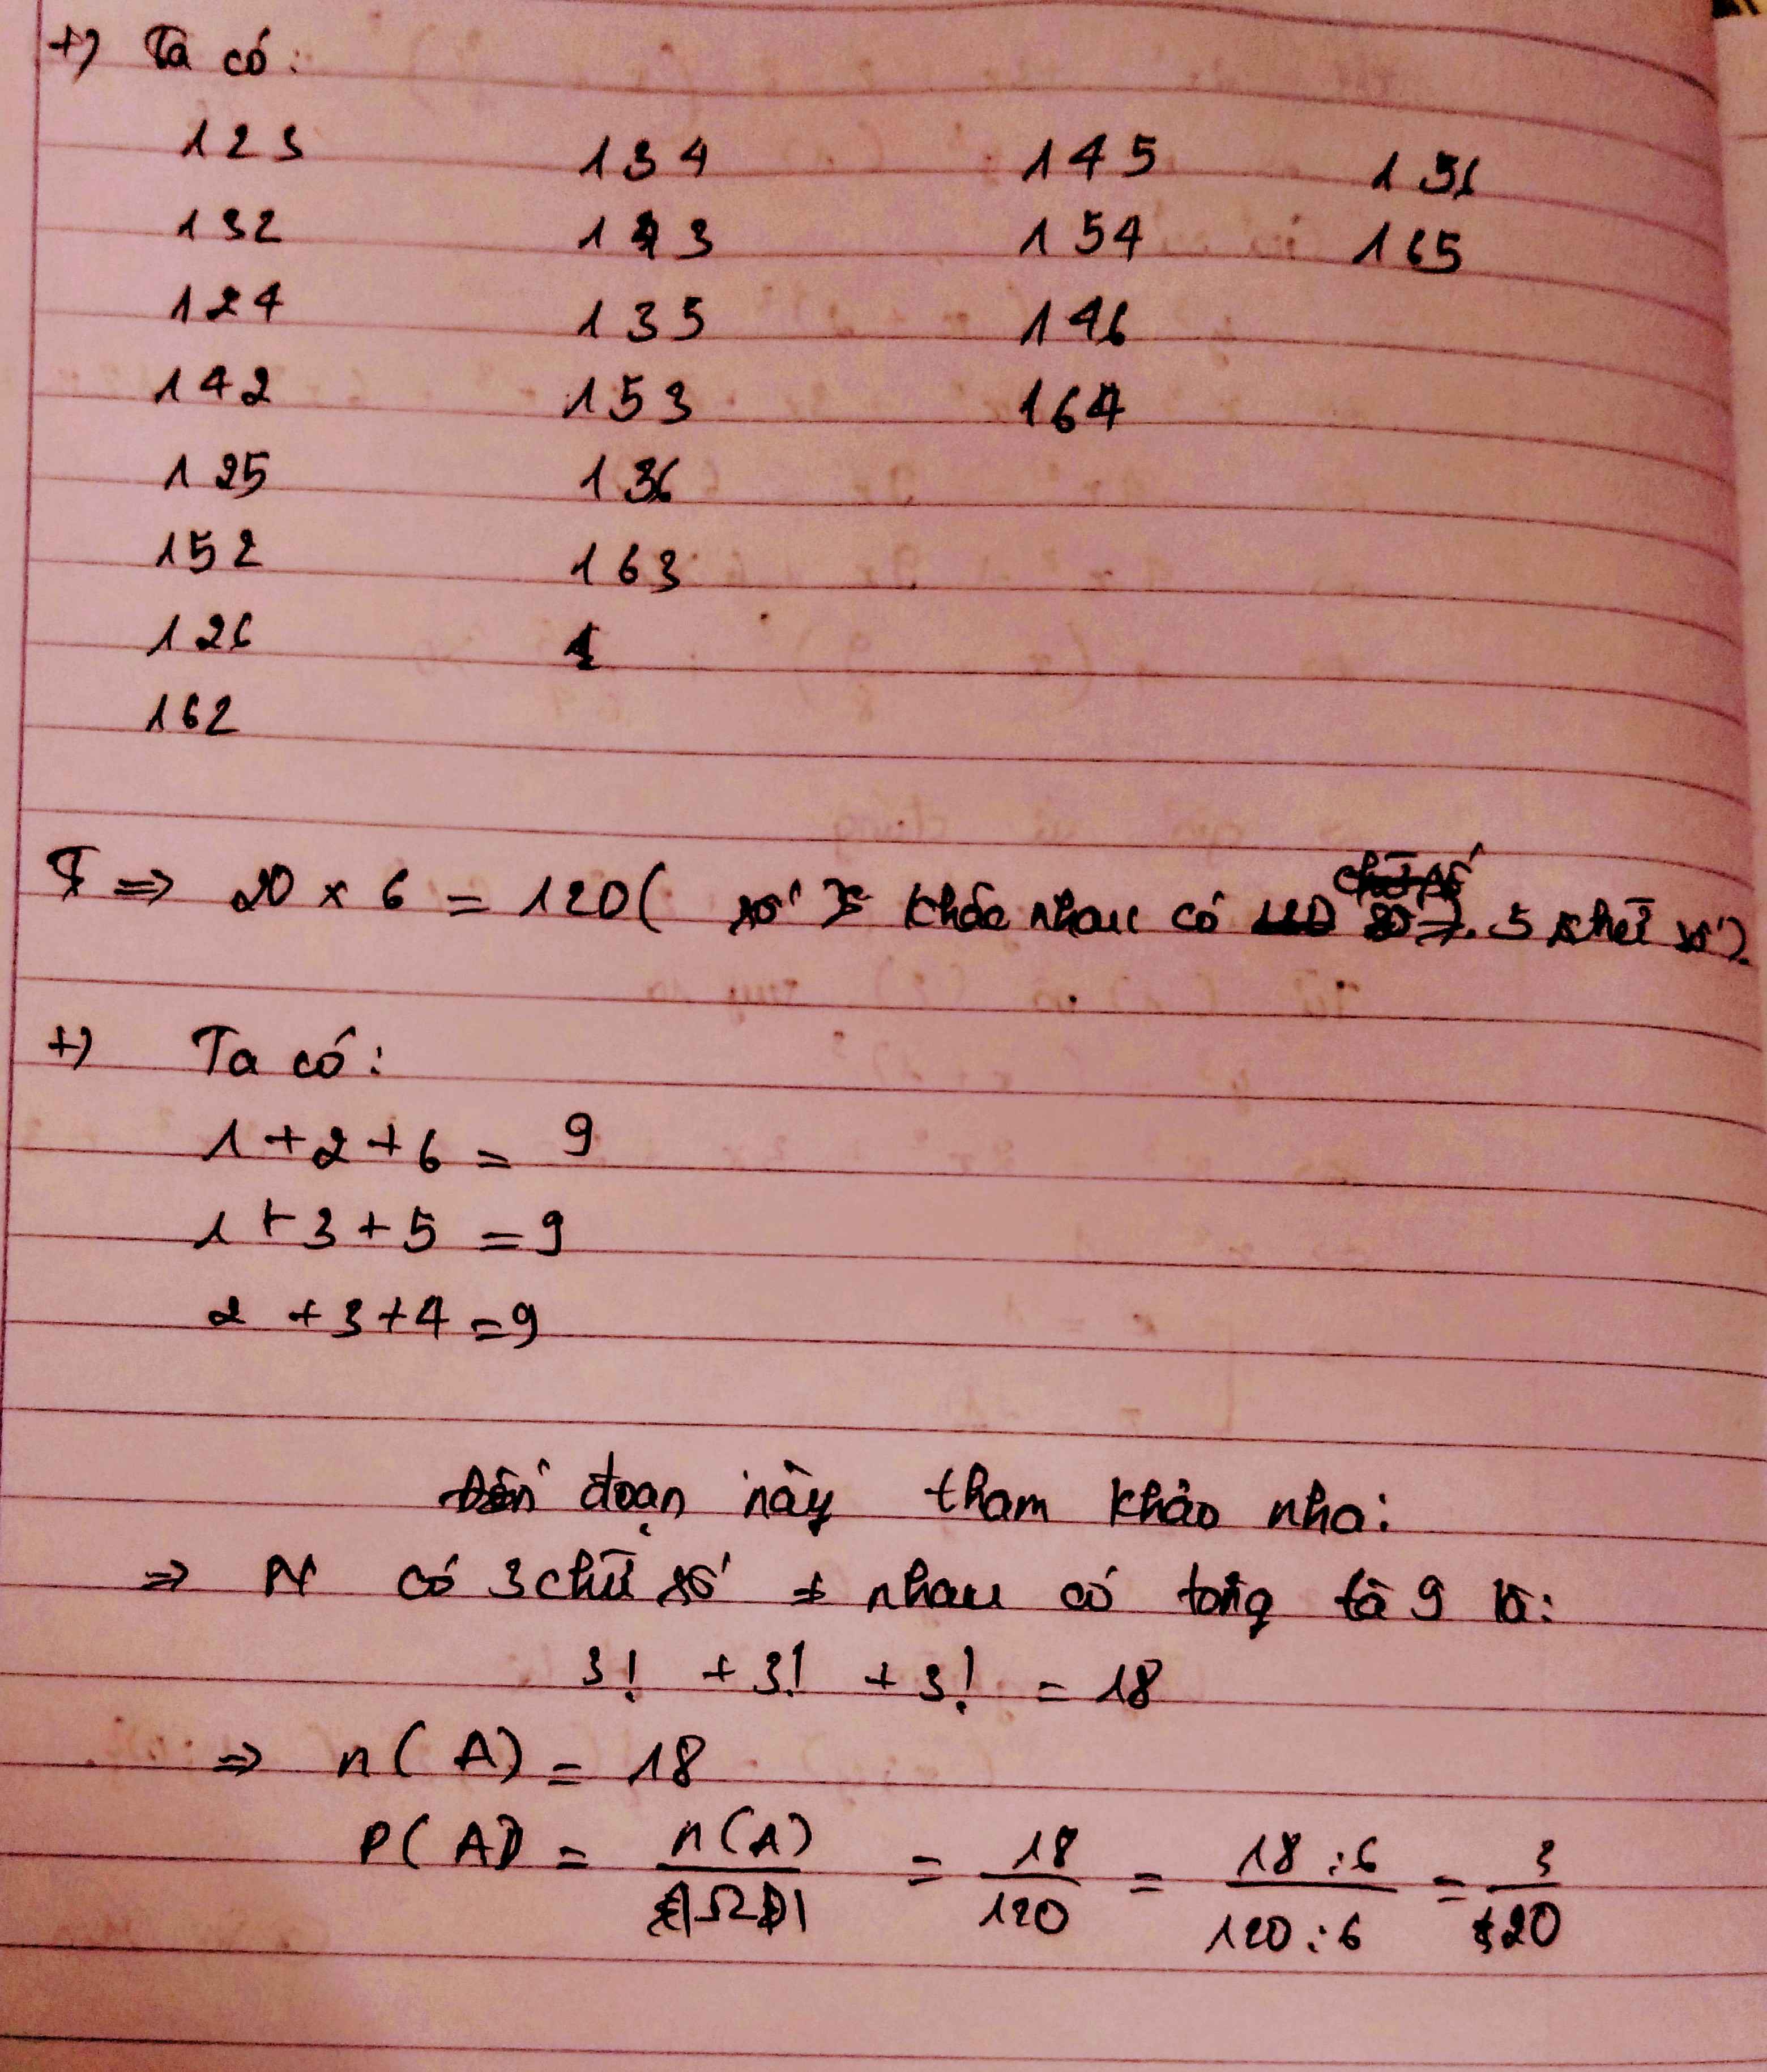 +) Ta có:
123 134 145 156
132 143 154 165
124 135 146
142 153 164
125 136
152 163
126
162
=> 20 x 6 = 120 ( số khác nhau có 3 chữ số).
+) Ta có:
1 + 2 + 6 = 9
1 + 3 + 5 = 9
2 + 3 + 4 = 9
đến đoạn này tham khảo nha:
=> N có 3 chữ số ≠ nhau có tổng là 9 là:
3! + 3! + 3! = 18
=> n(A) = 18
P(A) = n(A)/|Ω| = 18/120 = 18:6/120:6 = 3/20